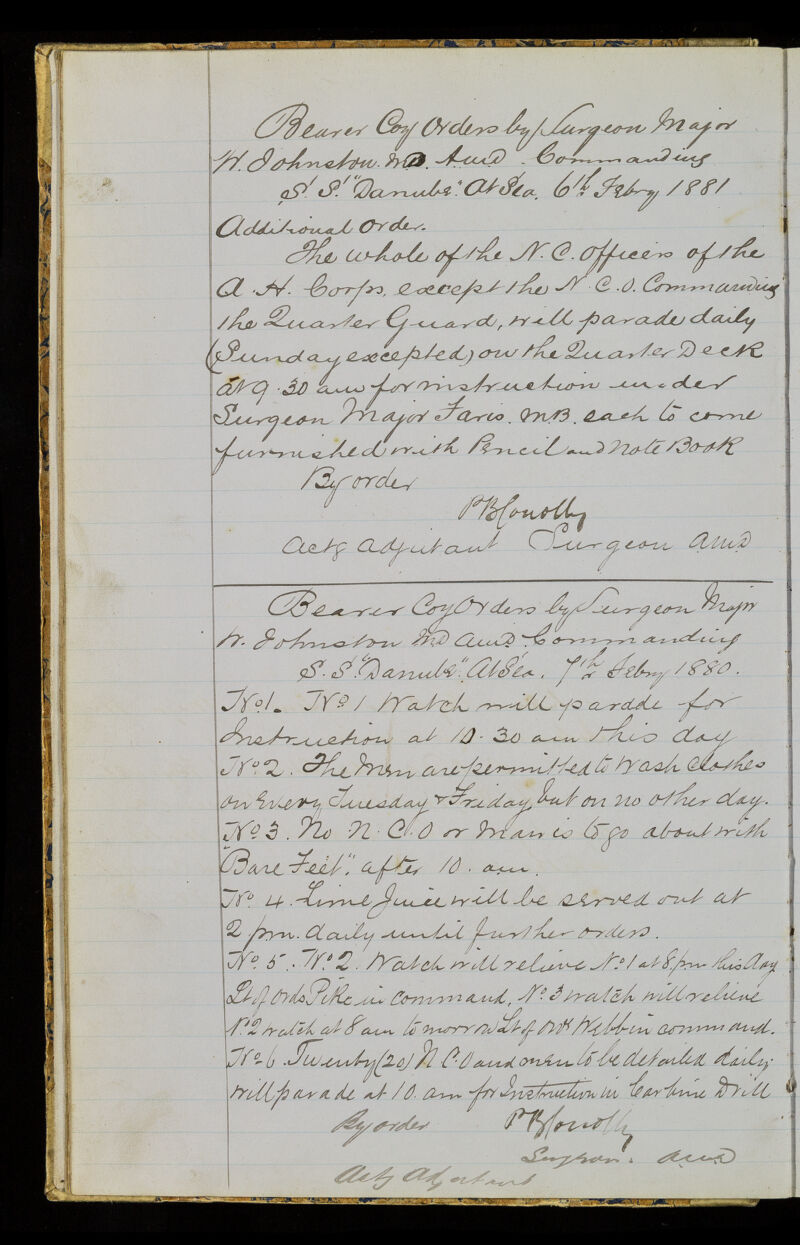 Bearer Coy Orders by Surgeon Major
W. Johnston. MD. Amd. Commanding
S. S. "Danube". At Sea. 6th Febry 1881
Additional order.
The whole of the N. C. Officers of the
A. H. Corps, except the N. C. O. Commanding
the Quarter Guard, will parade daily
(Sunday excepted) on the Quarter Deck
at 9.30 am for instruction under
Surgeon Major Faris. M.B. each to come
furnished with Pencil and Note Book
By order
PB Conolly
Actg Adjutant Surgeon Amd
Bearer Coy Orders by Surgeon Major
W. Johnston MD Amd. Commanding
S. S. "Danube". At Sea. 7th Febry 1880.
No 1. No 1 Watch will parade for
Instruction at 10.30 am this day
No 2. The Men are permitted to Wash Clothes
on Every Tuesday & Friday, but on no other day.
No 3. No N. C. O or Man is to go about with
"Bare Feet". after 10. am.
No 4. Lime Juice will be served out at
2 pm. daily until further orders.
No 5. No 2. Watch will relieve No 1 at 8 pm this day
Lt of Ords Pike in command, No 3 watch will relieve
No 2 watch at 8 am tomorrow Lt of Ords Webb in command.
No 6. Twenty (20) N. C. O and men to be detailed daily
will parade at 10. am for Instruction in Carbine Drill
By order PB Conolly
Surgeon. Amd
Actg Adjutant